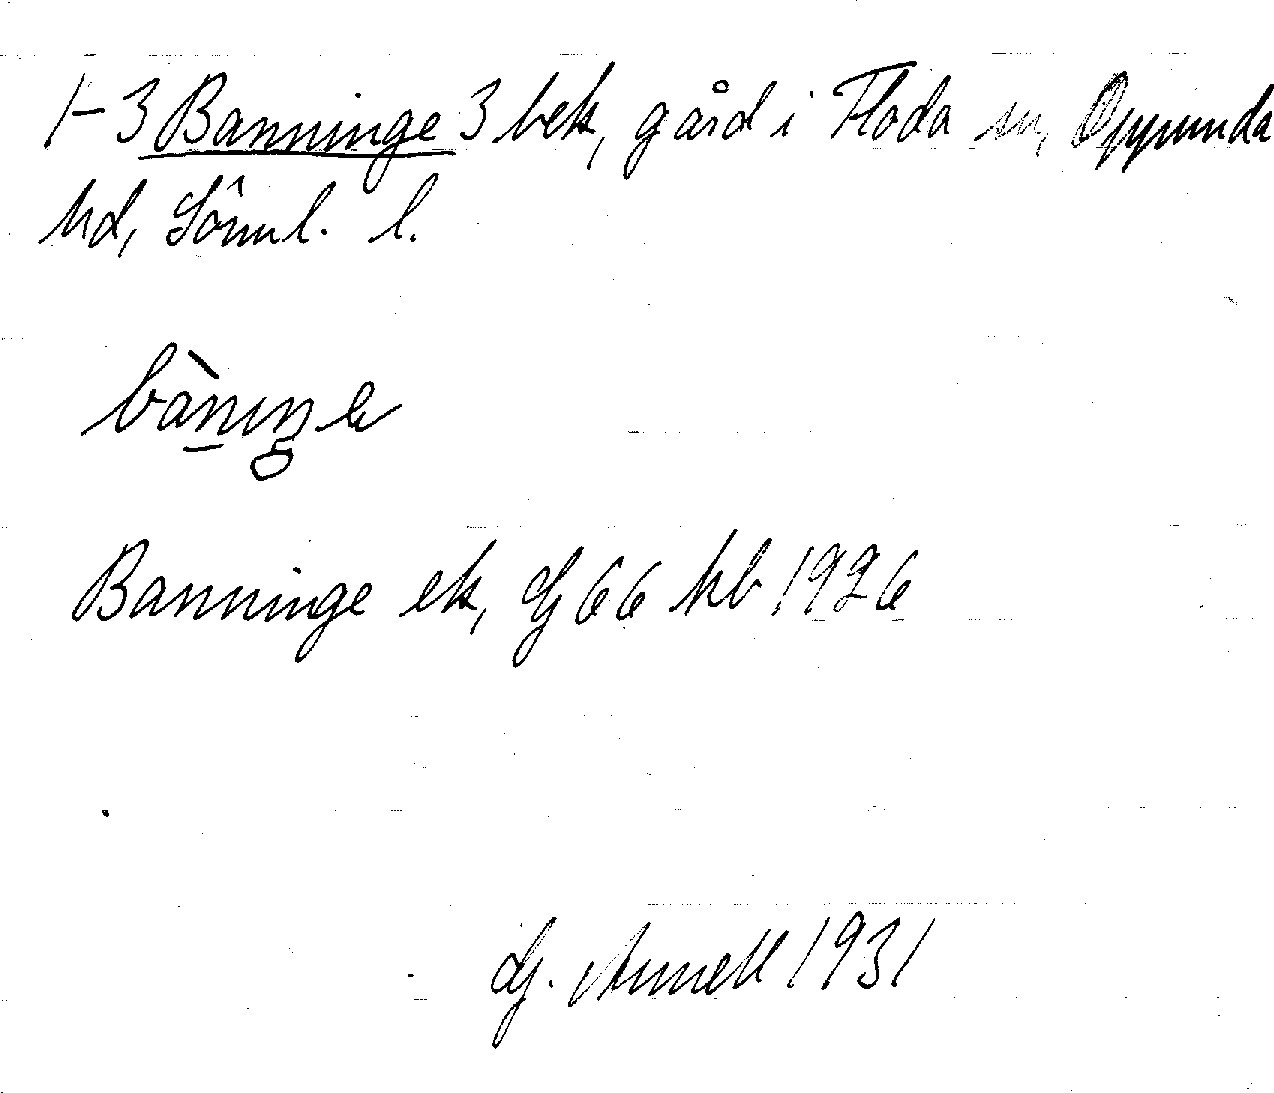 1-3 Banninge 3 bek, gård i Floda sn, Oppunda
hd, Sörml. l.
bàniŋe
Banninge ek, Gj 66 hb 1926
Gj. Annell 1931